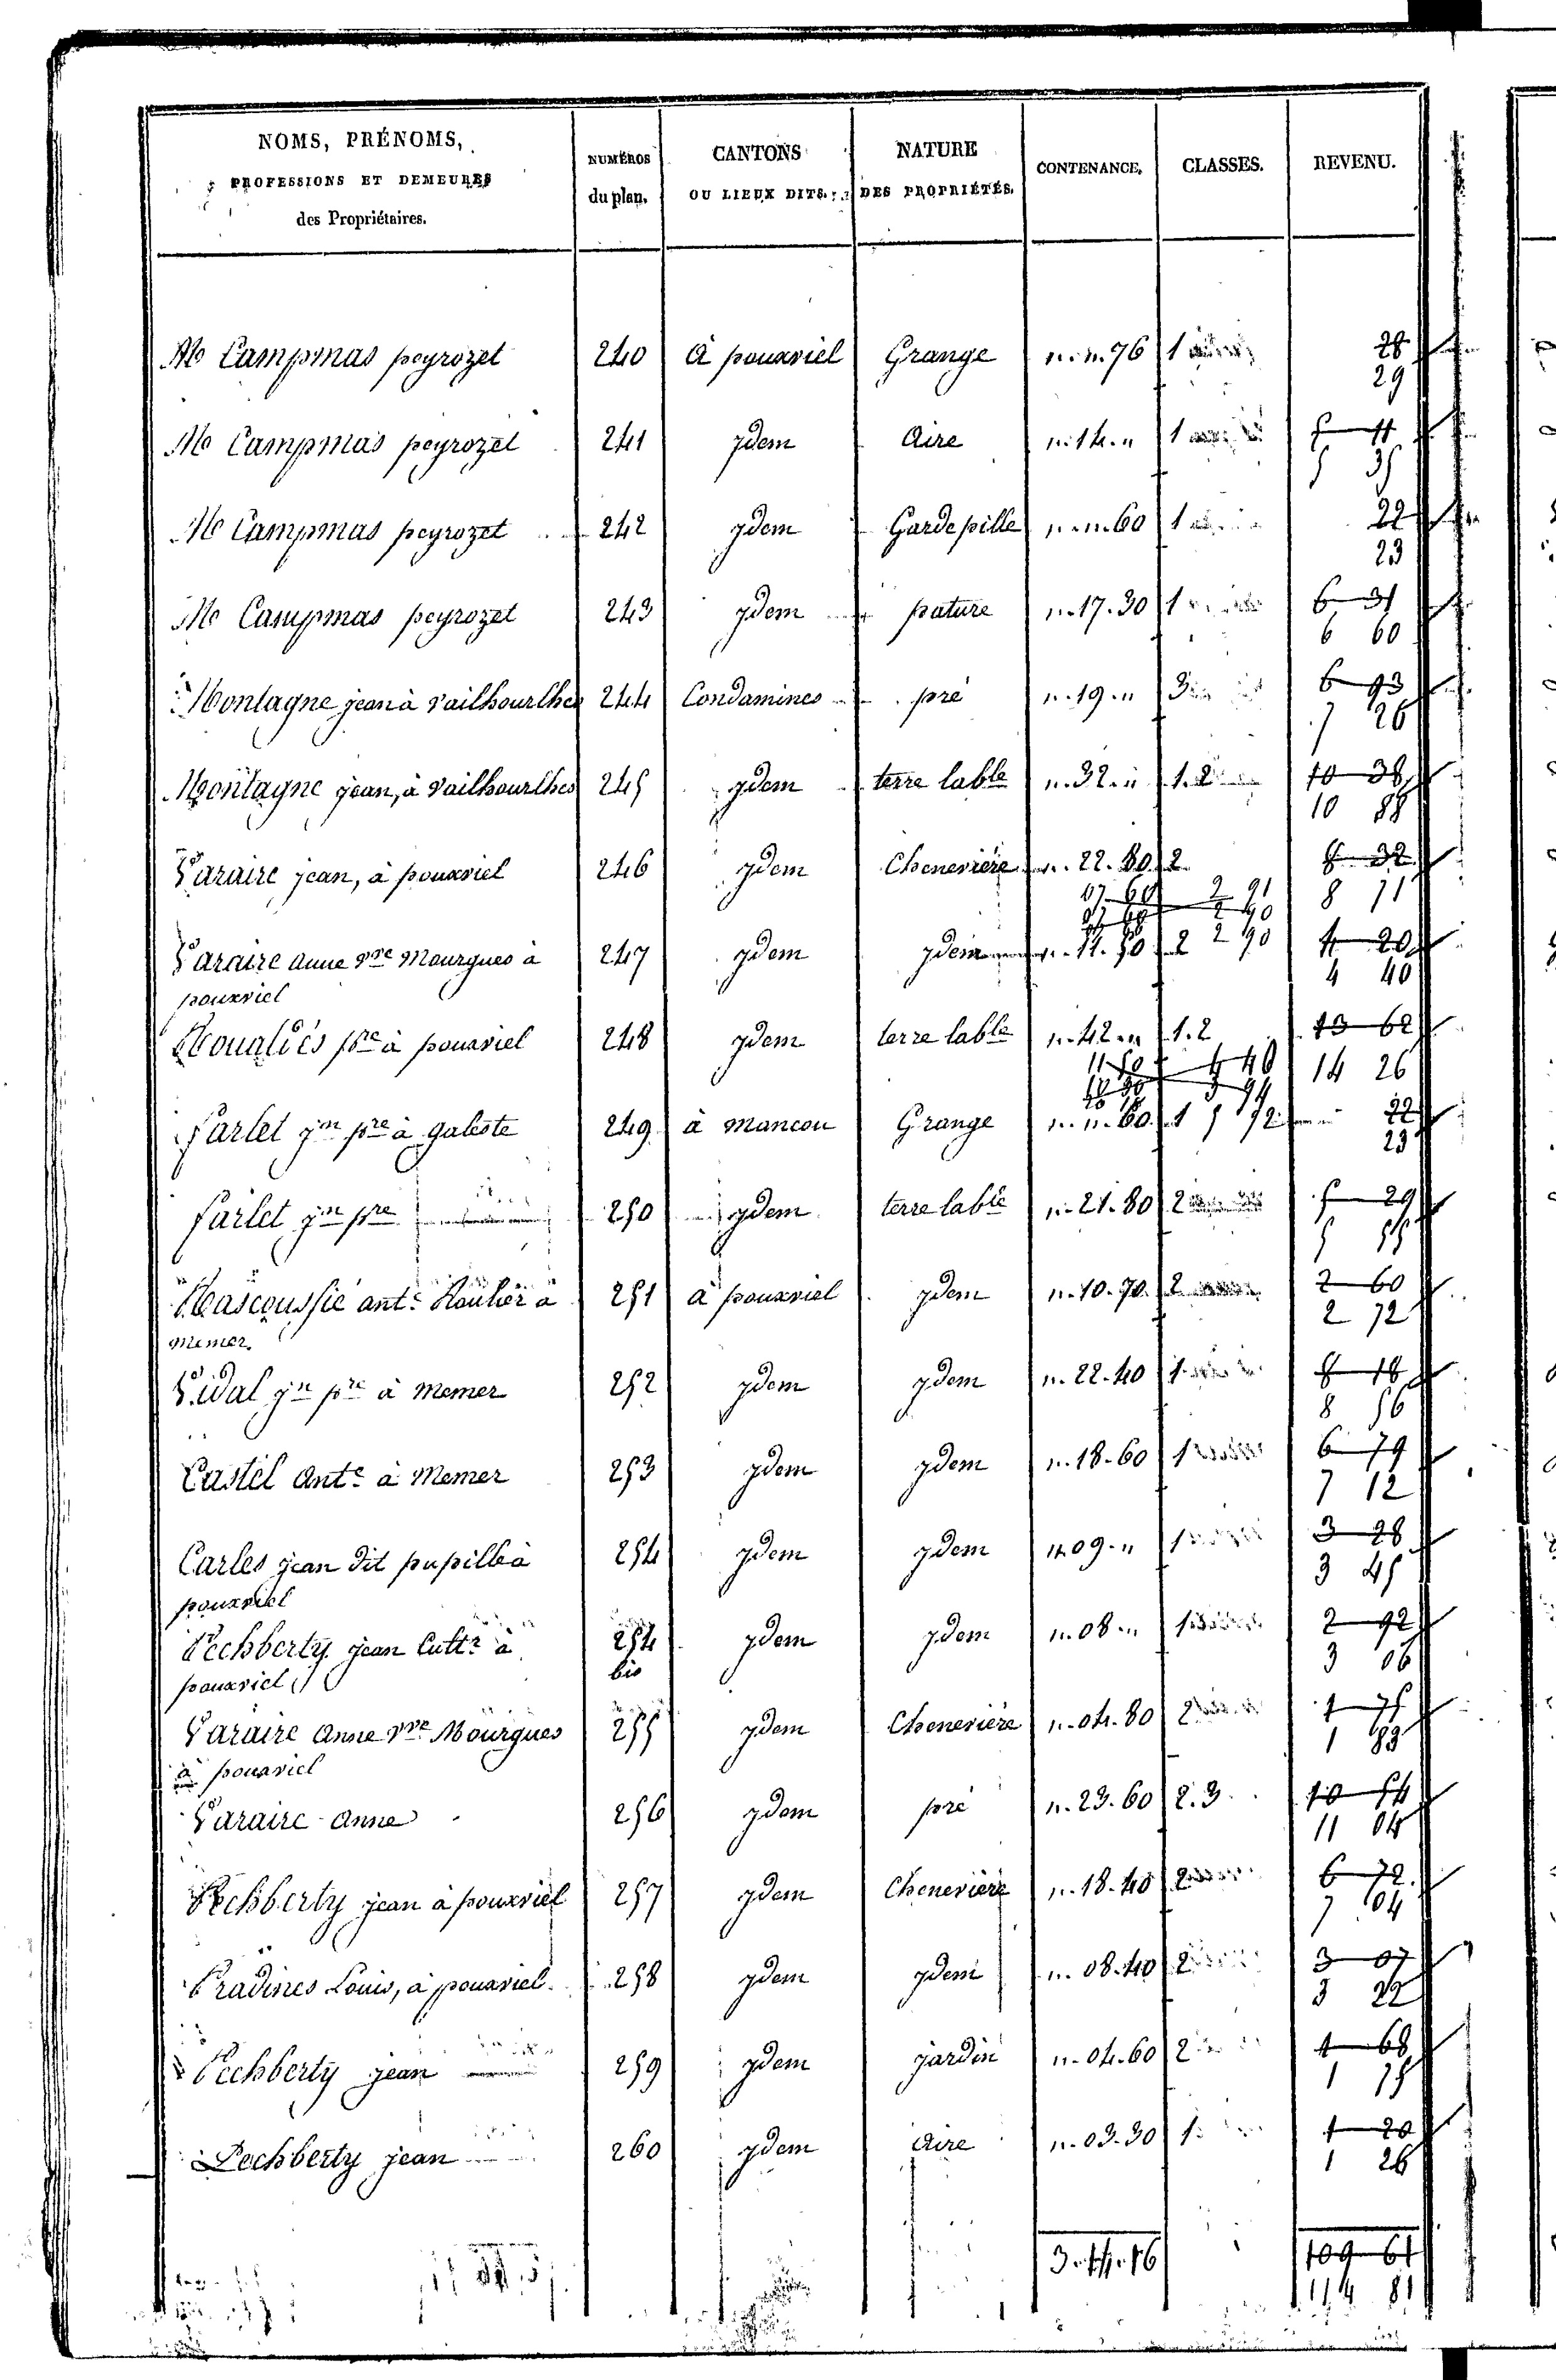 NOMS, PRÉNOMS, PROFESSIONS ET DEMEURES des Propriétaires. | NUMÉROS du plan. | CANTONS OU LIEUX DITS. | NATURE DES PROPRIÉTÉS. | CONTENANCE. | CLASSES. | REVENU.
Me Campmas peyrozet | 240 | à pouxviel | Grange | "."."76 | 1 | 28
29
Me Campmas peyrozet | 241 | ydem | Aire | ".14." | 1 | 5 11
5 35
Me Campmas peyrozet | 242 | ydem | Gardepille | ".".60 | 1 | 22
23
Me Campmas peyrozet | 243 | ydem | pature | ".17.30 | 1 | 6 31
6 60
Montagne jean à Vailhourlhes | 244 | Condamines | pré | ".19." | 3 | 6 93
7 26
Montagne jean, à Vailhourlhes | 245 | ydem | terre lable | ".32." | 1.2 | 10 38
10 88
Varaire jean, à pouxviel | 246 | ydem | Chenevière | ".22.80 | 2 | 8 32
8 71
Varaire Anne Vve Mourgues à | 247 | ydem | ydem | ".11.50 | 2 | 4 20
pouxviel | 4 40
pre à pouxviel | 248 | ydem | terre lable | ".42." | 1.2 | 13 62
14 26
Farlet jn pre à galeste | 249 | à mancou | Grange | ".".60 | 1 | 22
23
Farlet jn pre | 250 | ydem | terre lable | ".21.80 | 2 | 5 29
5 55
Mascoussié ante Roulier à | 251 | à pouxviel | ydem | ".10.70 | 2 | 2 60
memer | 2 72
Vidal jn pre à memer | 252 | ydem | ydem | ".22.40 | 1 | 8 18
8 56
Castel Ante à memer | 253 | ydem | ydem | ".18.60 | 1 | 6 79
7 12
Carles jean dit pupille à | 254 | ydem | ydem | ".09." | 1 | 3 28
pouxviel | 3 45
Pechberty jean Cultr à | 254 bis | ydem | ydem | ".08." | 1 | 2 92
pouxviel | 3 06
Varaire Anne Vve Mourgues | 255 | ydem | Cheneviere | ".04.80 | 2 | 1 75
à pouxviel | 1 83
Varaire Anne | 256 | ydem | pré | ".23.60 | 2.3 | 10 54
11 04
Pechberty jean à pouxviel | 257 | ydem | Cheneviere | ".18.40 | 2 | 6 72
7 04
Pradines Louis, à pouxviel | 258 | ydem | ydem | ".08.40 | 2 | 3 07
3 22
Pechberty jean | 259 | ydem | jardin | ".04.60 | 2 | 1 68
1 75
Pechberty jean | 260 | ydem | Aire | ".03.30 | 1 | 1 20
1 26
3.11.16 | 109 61
114 81